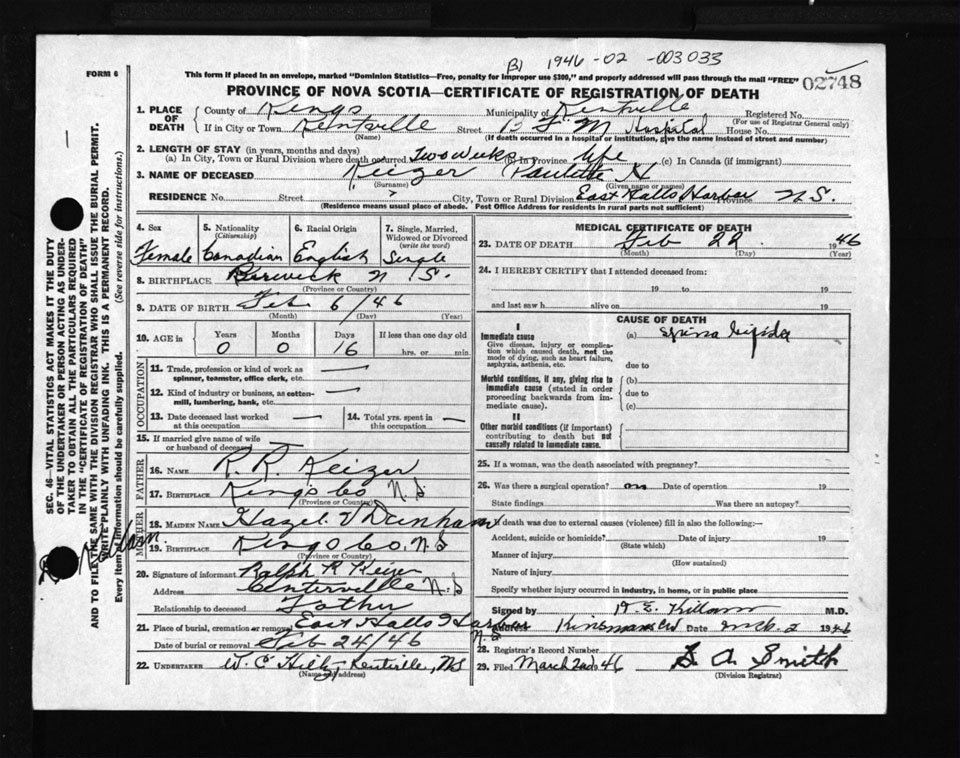 B) 1946-02 -003033
FORM 6
This form if placed in an envelope, marked "Dominion Statistics—Free, penalty for improper use $300," and properly addressed will pass through the mail "FREE"
02748
PROVINCE OF NOVA SCOTIA—CERTIFICATE OF REGISTRATION OF DEATH
1. PLACE OF DEATH
County of Kings Municipality of Kentville Registered No.
(For use of Registrar General only)
If in City or Town Kentville Street B F M Hospital House No.
(Name) (If death occurred in a hospital or institution, give the name instead of street and number)
2. LENGTH OF STAY (in years, months and days)
(a) In City, Town or Rural Division where death occurred Two Weeks (b) In Province Life (c) In Canada (if immigrant)
3. NAME OF DECEASED Keizer Paulette H
(Surname) (Given name or names)
RESIDENCE No. Street City, Town or Rural Division East Halls Harbor Province N.S.
(Residence means usual place of abode. Post Office Address for residents in rural parts not sufficient)
4. Sex
5. Nationality (Citizenship)
6. Racial Origin
7. Single, Married, Widowed or Divorced (write the word)
Female Canadian English Single
8. BIRTHPLACE Berwick N.S.
(Province or Country)
9. DATE OF BIRTH Feb 6/46
(Month) (Day) (Year)
10. AGE in Years Months Days If less than one day old
0 0 16 hrs. or min.
OCCUPATION
11. Trade, profession or kind of work as spinner, teamster, office clerk, etc. —
12. Kind of industry or business, as cotten-mill, lumbering, bank, etc. —
13. Date deceased last worked at this occupation —
14. Total yrs. spent in this occupation —
15. If married give name of wife or husband of deceased —
FATHER
16. NAME R. R. Keizer
17. BIRTHPLACE Kings Co N.S
(Province or Country)
MOTHER
18. MAIDEN NAME Hazel V Dunham
19. BIRTHPLACE Kings Co. N.S
(Province or Country)
20. Signature of informant Ralph R Keizer
Address Centerville N.S
Relationship to deceased Father
21. Place of burial, cremation or removal East Halls Harbor N.S
Date of burial or removal Feb 24/46
22. UNDERTAKER W. C Hiltz, Kentville, NS
(Name and address)
MEDICAL CERTIFICATE OF DEATH
23. DATE OF DEATH Feb 22 1946
(Month) (Day) (Year)
24. I HEREBY CERTIFY that I attended deceased from:
19 to 19
and last saw h alive on 19
CAUSE OF DEATH
I
Immediate cause (a) Spina bifida
Give disease, injury or complication which caused death, not the mode of dying, such as heart failure, asphyxia, asthenia, etc.
due to
Morbid conditions, if any, giving rise to immediate cause (stated in order proceeding backwards from immediate cause).
(b)
due to
(c)
II
Other morbid conditions (if important) contributing to death but not causally related to immediate cause.
25. If a woman, was the death associated with pregnancy?
26. Was there a surgical operation? no Date of operation 19
State findings Was there an autopsy?
If death was due to external causes (violence) fill in also the following:—
Accident, suicide or homicide? Date of injury 19
(State which)
Manner of injury
(How sustained)
Nature of injury
Specify whether injury occurred in industry, in home, or in public place
Signed by H. E. Killam M.D.
Address Kinsmans Cor Date Mch. 2 1946
28. Registrar's Record Number
29. Filed March 2nd 46 S. A. Smith
(Division Registrar)
SEC. 46—VITAL STATISTICS ACT MAKES IT THE DUTY
OF THE UNDERTAKER OR PERSON ACTING AS UNDER-
TAKER TO OBTAIN ALL THE PARTICULARS REQUIRED
IN THE "CERTIFICATE OF REGISTRATION OF DEATH"
AND TO FILE THE SAME WITH THE DIVISION REGISTRAR WHO SHALL ISSUE THE BURIAL PERMIT.
WRITE PLAINLY WITH UNFADING INK. THIS IS A PERMANENT RECORD.
Every item of information should be carefully supplied. (See reverse side for instructions.)